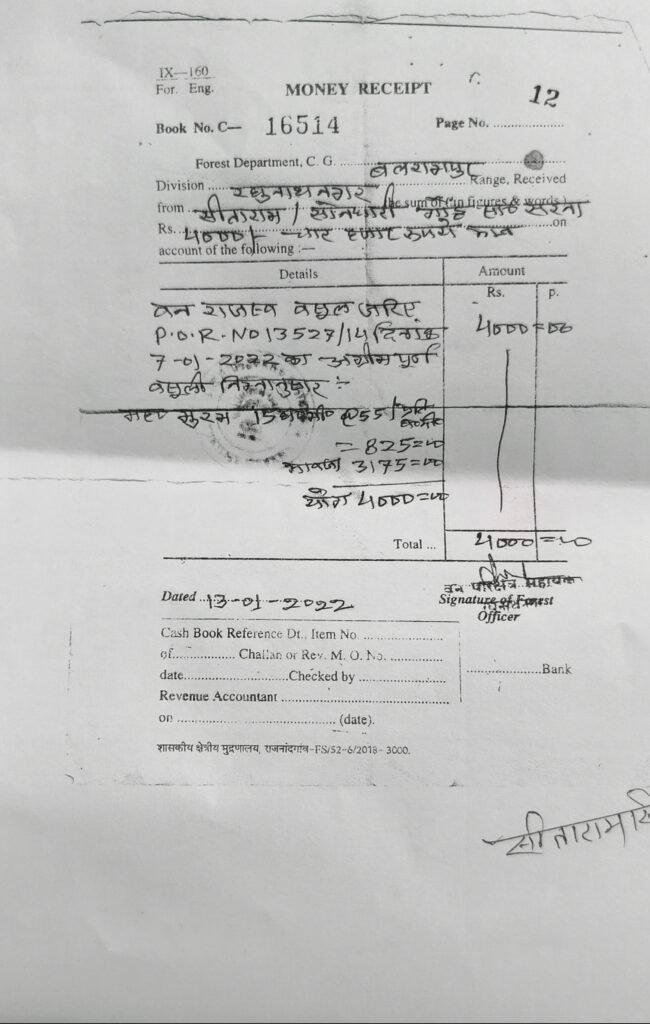 IX—160
For. Eng.
MONEY RECEIPT
12
Book No. C— 16514 Page No. ....................
Forest Department, C. G. .......... बलरामपुर
Division ...... रघुनाथनगर .......... Range, Received
from सीताराम / सोनधारी the sum of (in figures & words)
Rs. 4000/- चार हजार रुपये मात्र on
account of the following :—
Details Amount
Rs. p.
वन राजस्व वसूल जरिए
P.O.R. NO 13527/14 दिनांक 4000=00
7-01-2022 का अग्रीम पूर्ण
वसूली निम्नानुसार :-
मुरम 15 @ 55/ प्रति
= 825=00
3175=00
योग 4000=00
Total ... 4000=00
वन परिक्षेत्र सहायक
Dated .. 13-01-2022
Signature of Forest
Officer
Cash Book Reference Dt., Item No. ....................
of................ Challan or Rev. M. O. No. ..............
date..........................Checked by ......................
......................Bank
Revenue Accountant ...........................................
on ........................................ (date).
शासकीय क्षेत्रीय मुद्रणालय, राजनांदगांव-FS/52-6/2018- 3000.